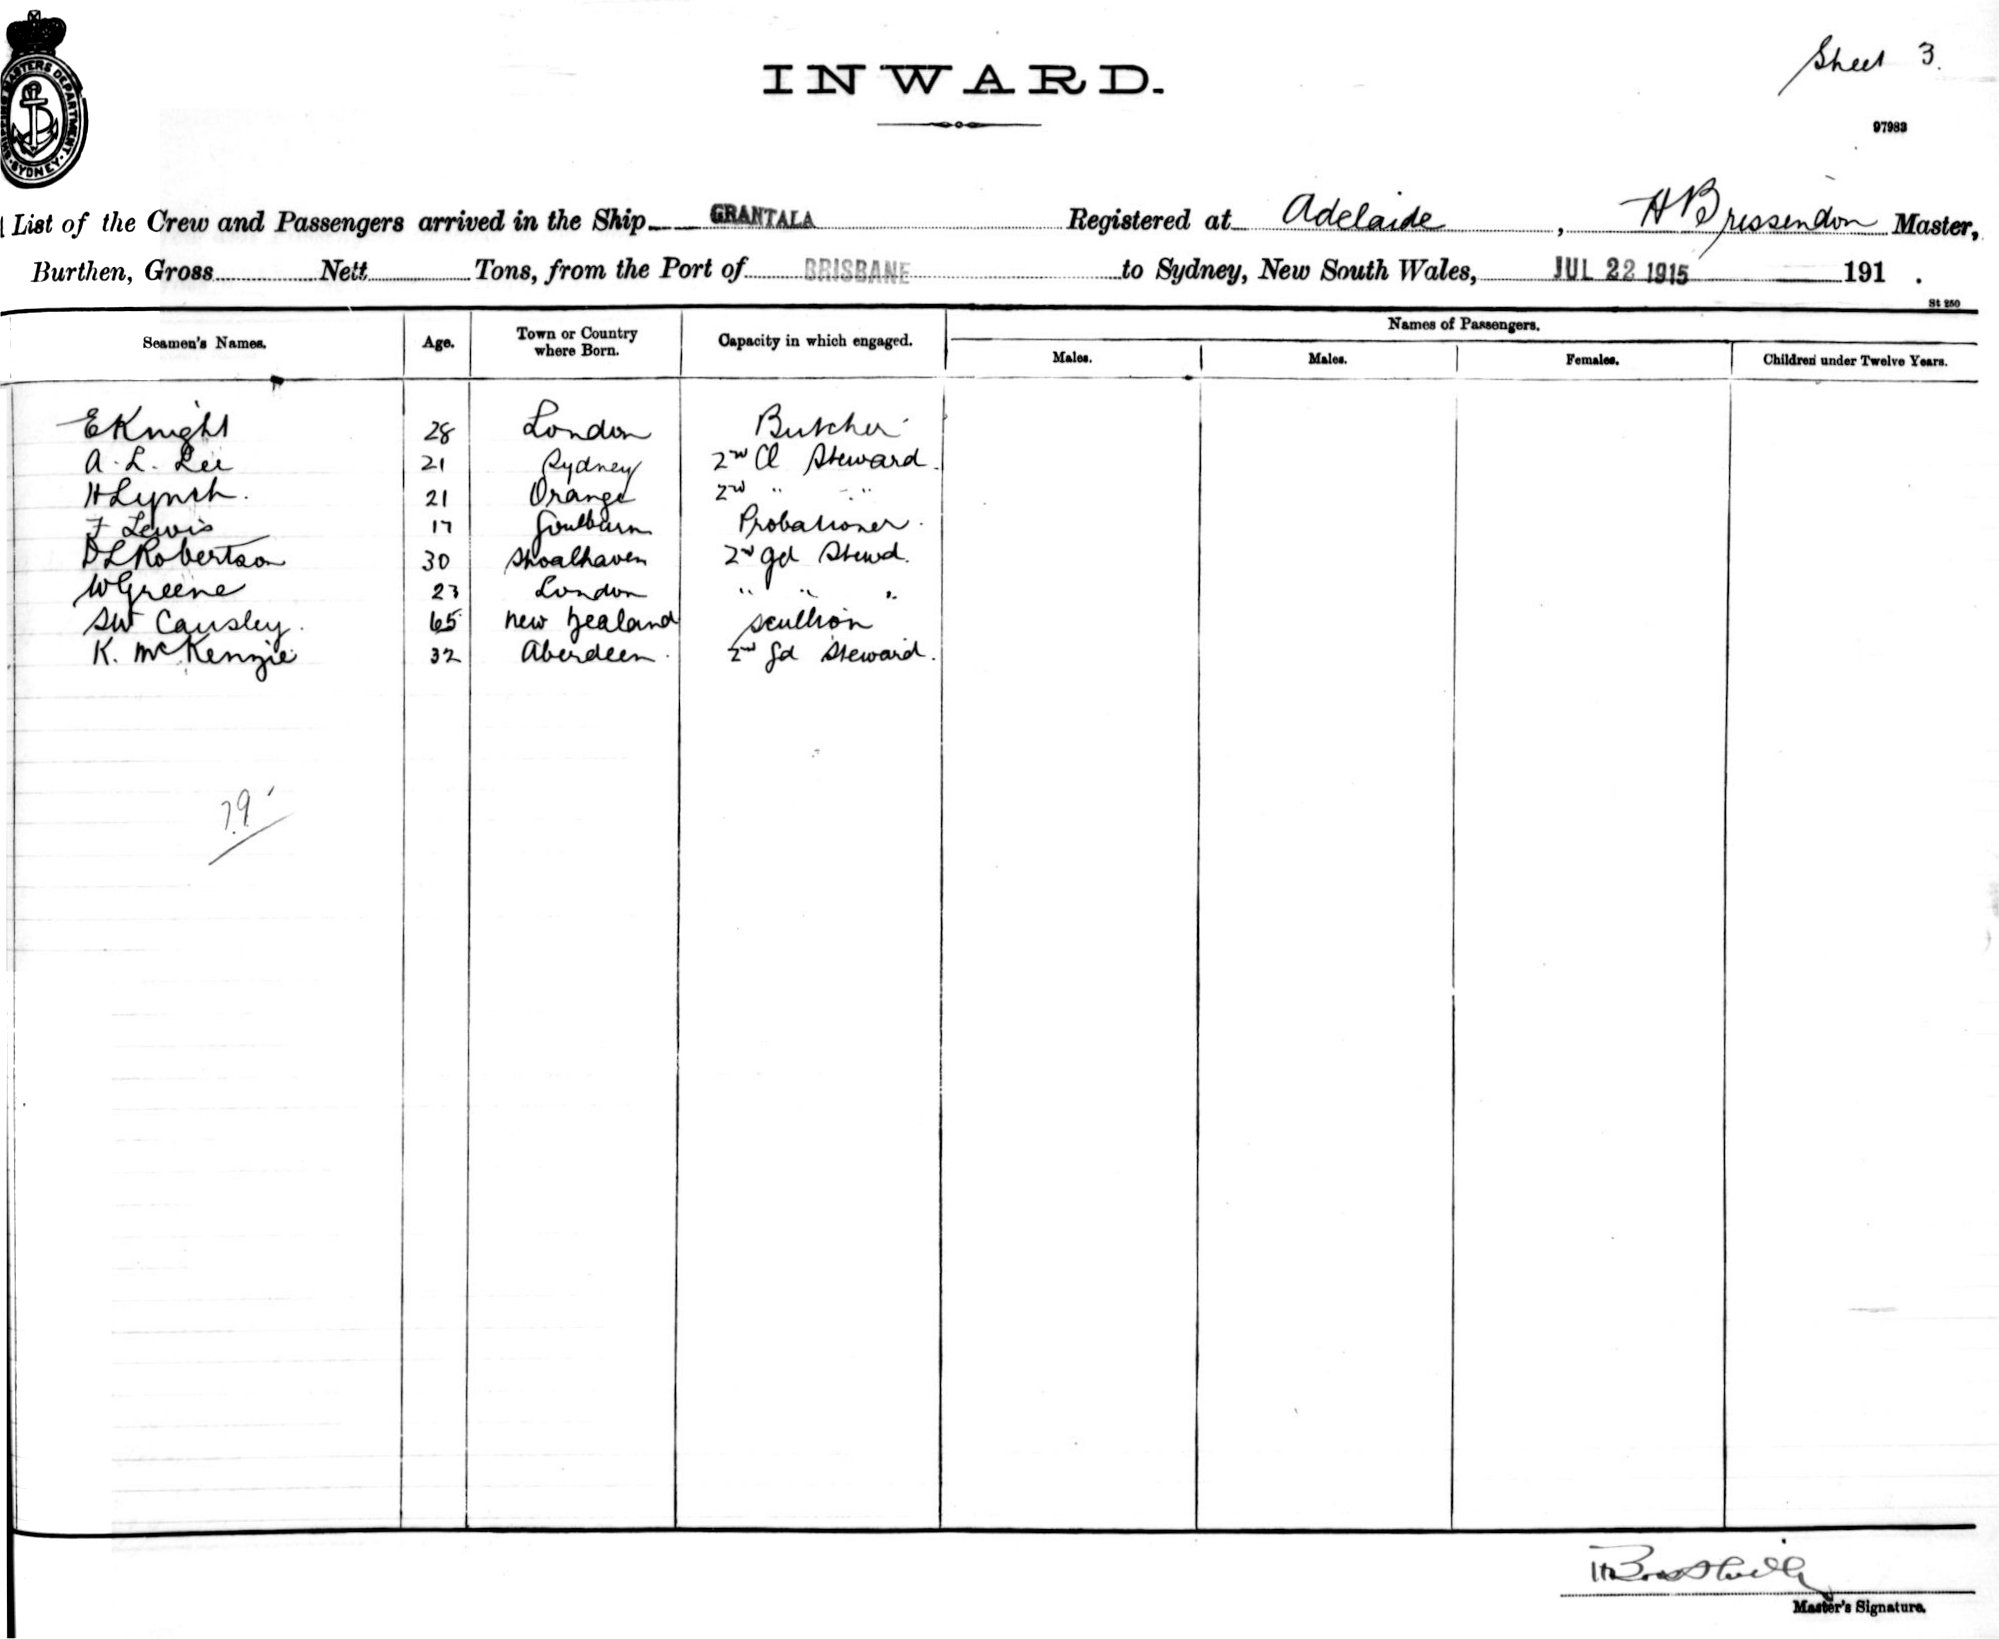 Sheet 3.
INWARD.
97983
SHIPPING MASTERS DEPARTMENT · SYDNEY ·
List of the Crew and Passengers arrived in the Ship GRANTALA Registered at Adelaide, H Brissendon Master,
Burthen, Gross Nett Tons, from the Port of BRISBANE to Sydney, New South Wales, JUL 22 1915 191 .
St 250
Seamen's Names. Age. Town or Country where Born. Capacity in which engaged. Names of Passengers.
Males. Males. Females. Children under Twelve Years.
E Knight 28 London Butcher
A. L. Lee 21 Sydney 2nd Cl Steward.
H Lynch. 21 Orange 2nd " "
F Lewis 17 Goulburn Probationer.
D L Robertson 30 Shoalhaven 2nd gd Stewd.
W Greene 23 London " " "
SW Causley. 65 New Zealand Scullion
K. McKenzie 32 Aberdeen. 2nd gd Steward.
79
Master's Signature.